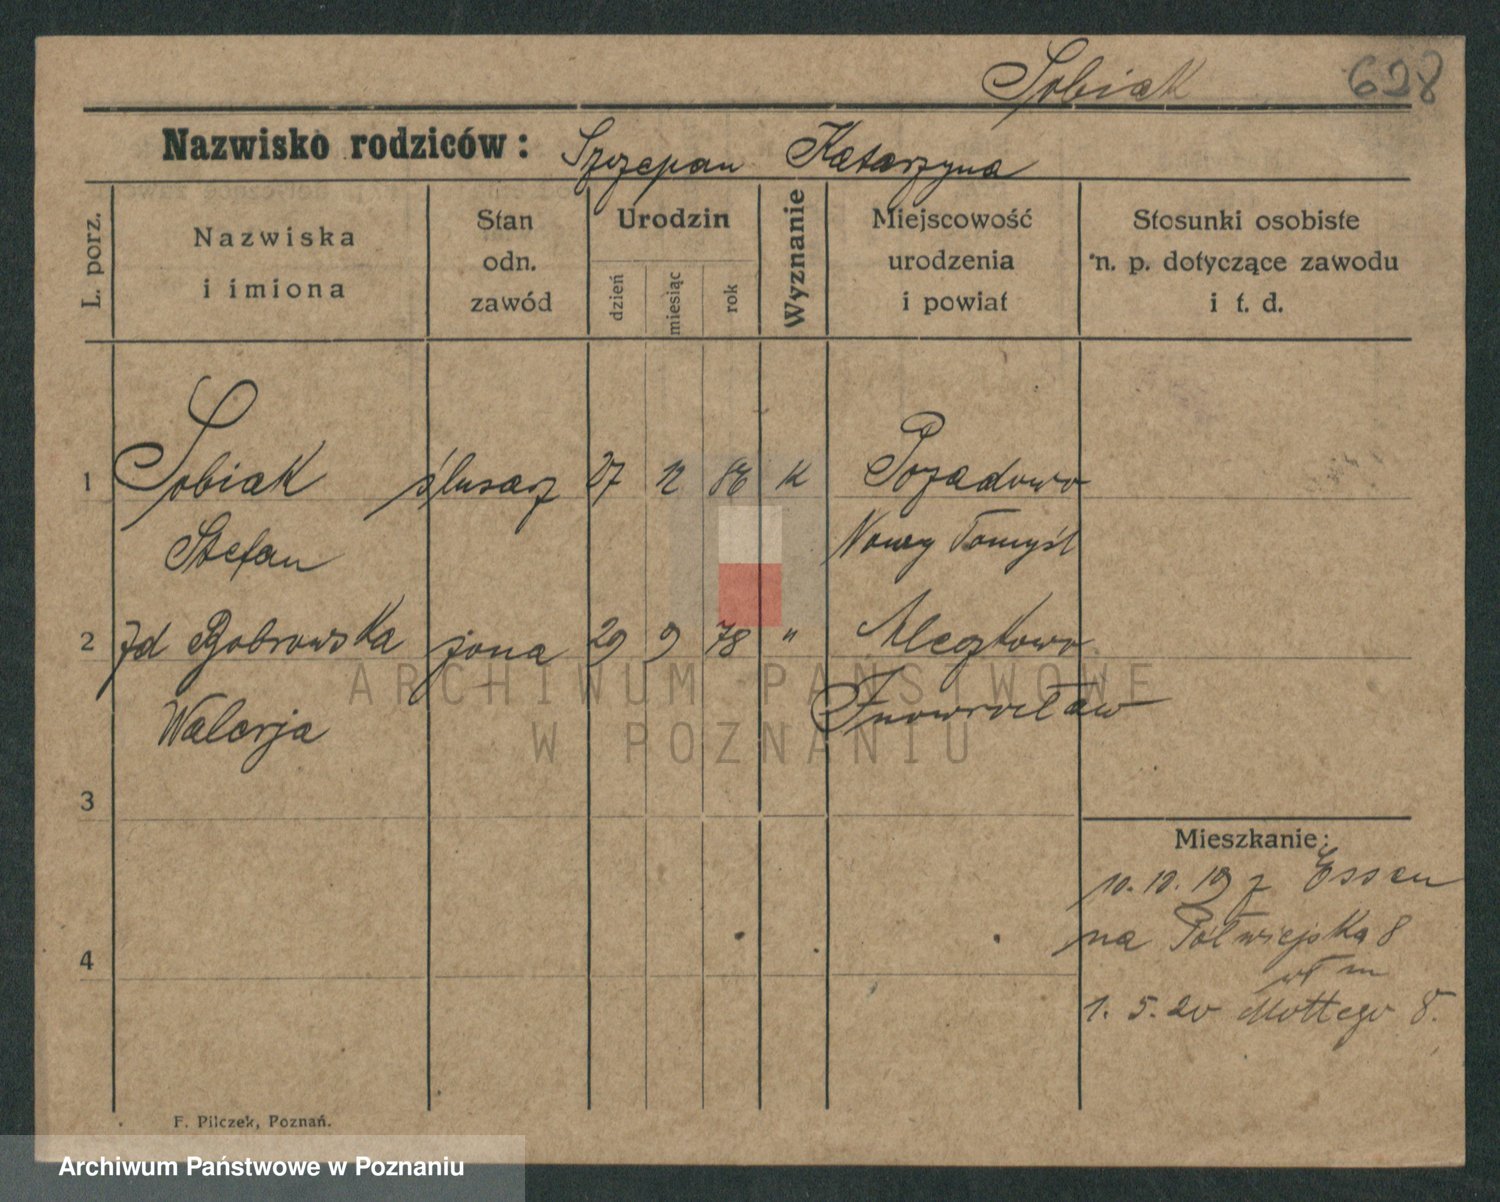 Sobiak 698
Nazwisko rodziców: Szczepan Katarzyna
L. porz.
Nazwiska
i imiona
Stan
odn.
zawód
Urodzin
dzień
miesiąc
rok
Wyznanie
Miejscowość
urodzenia
i powiat
Stosunki osobiste
n. p. dotyczące zawodu
i t. d.
1 Sobiak ślusarz 27 12 86 K Pozadowo
Stefan Nowy Tomyśl
2 zd Bobrowska żona 29 9 78 "
Walerja Inowrocław
3
4
Mieszkanie:
10.10.19 z Essen
na Półwiejska 8
1. 5. 20 Mottego 8.
F. Pilczek, Poznań.
ARCHIWUM PAŃSTWOWE
W POZNANIU
Archiwum Państwowe w Poznaniu